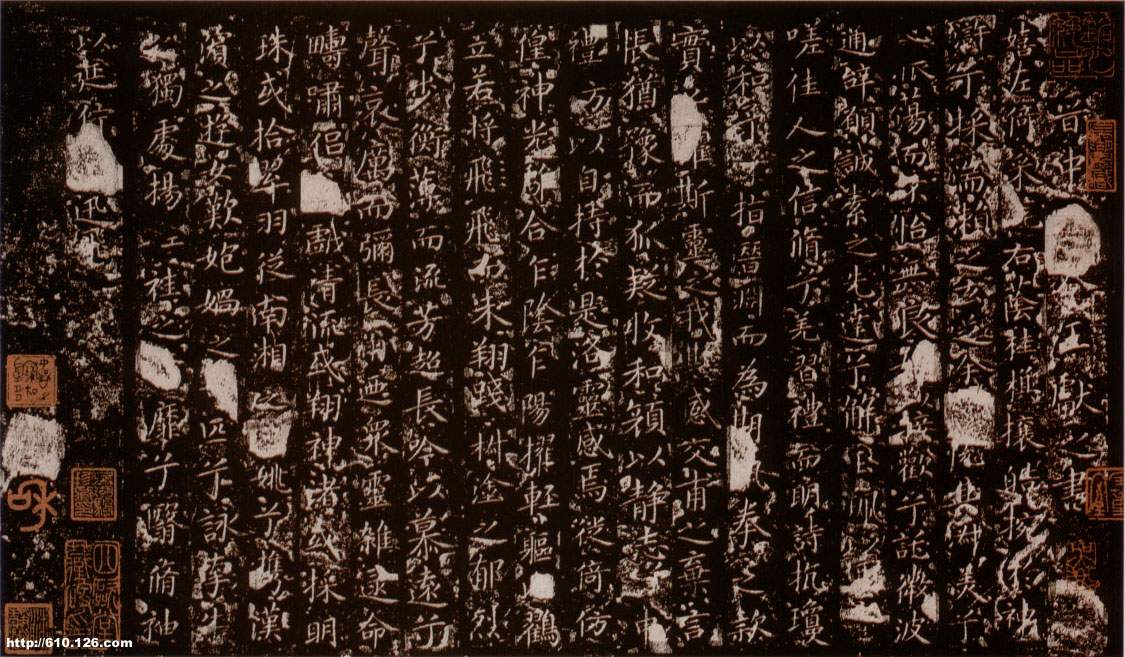 晉中令王獻之書
嬉左倚采右蔭桂旗攘皓捥神
滸兮採湍瀨之玄芝余悅淑美兮
心振蕩而不怡無良以接歡兮託微波
通辭願誠素之先達兮解玉珮以
嗟佳人之信脩兮羌習禮而明詩抗瓊
以和予兮指潛淵而為期執拳之款
實懼斯靈之我欺感交甫之棄言
悵猶豫而狐疑收和顏以静志兮申
禮方以自持於是洛靈感焉徙倚仿
偟神光離合乍陰乍陽擢輕軀鶴
立若将飛而未翔踐椒塗之郁烈
兮步衡薄而流芳超長吟以慕遠兮
聲哀厲而彌長爾迺衆靈雜遝命
疇嘯侣戲清流或翔神渚或採明
珠或拾翠羽從南湘之姚兮攜漢
濱之遊女歎匏媧之匹兮詠牽牛
之獨處揚輕袿之靡兮翳脩袖
以延佇迅飛
http://610.126.com